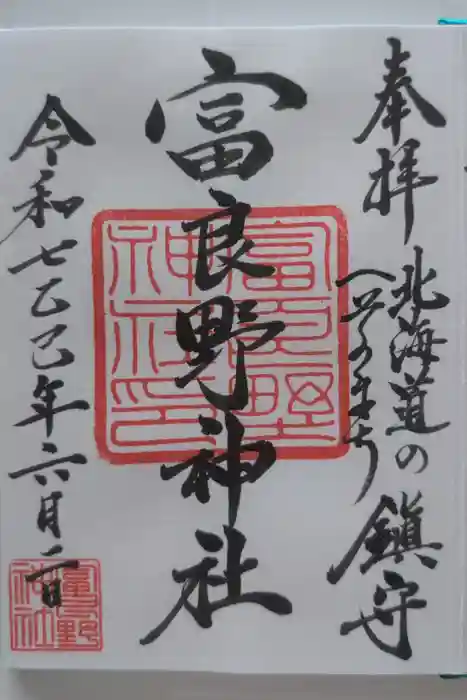 奉拝
北海道の
(へそのまち)
鎮守
富良野神社
富良野神社印
令和七乙巳年六月二日
富良野神社